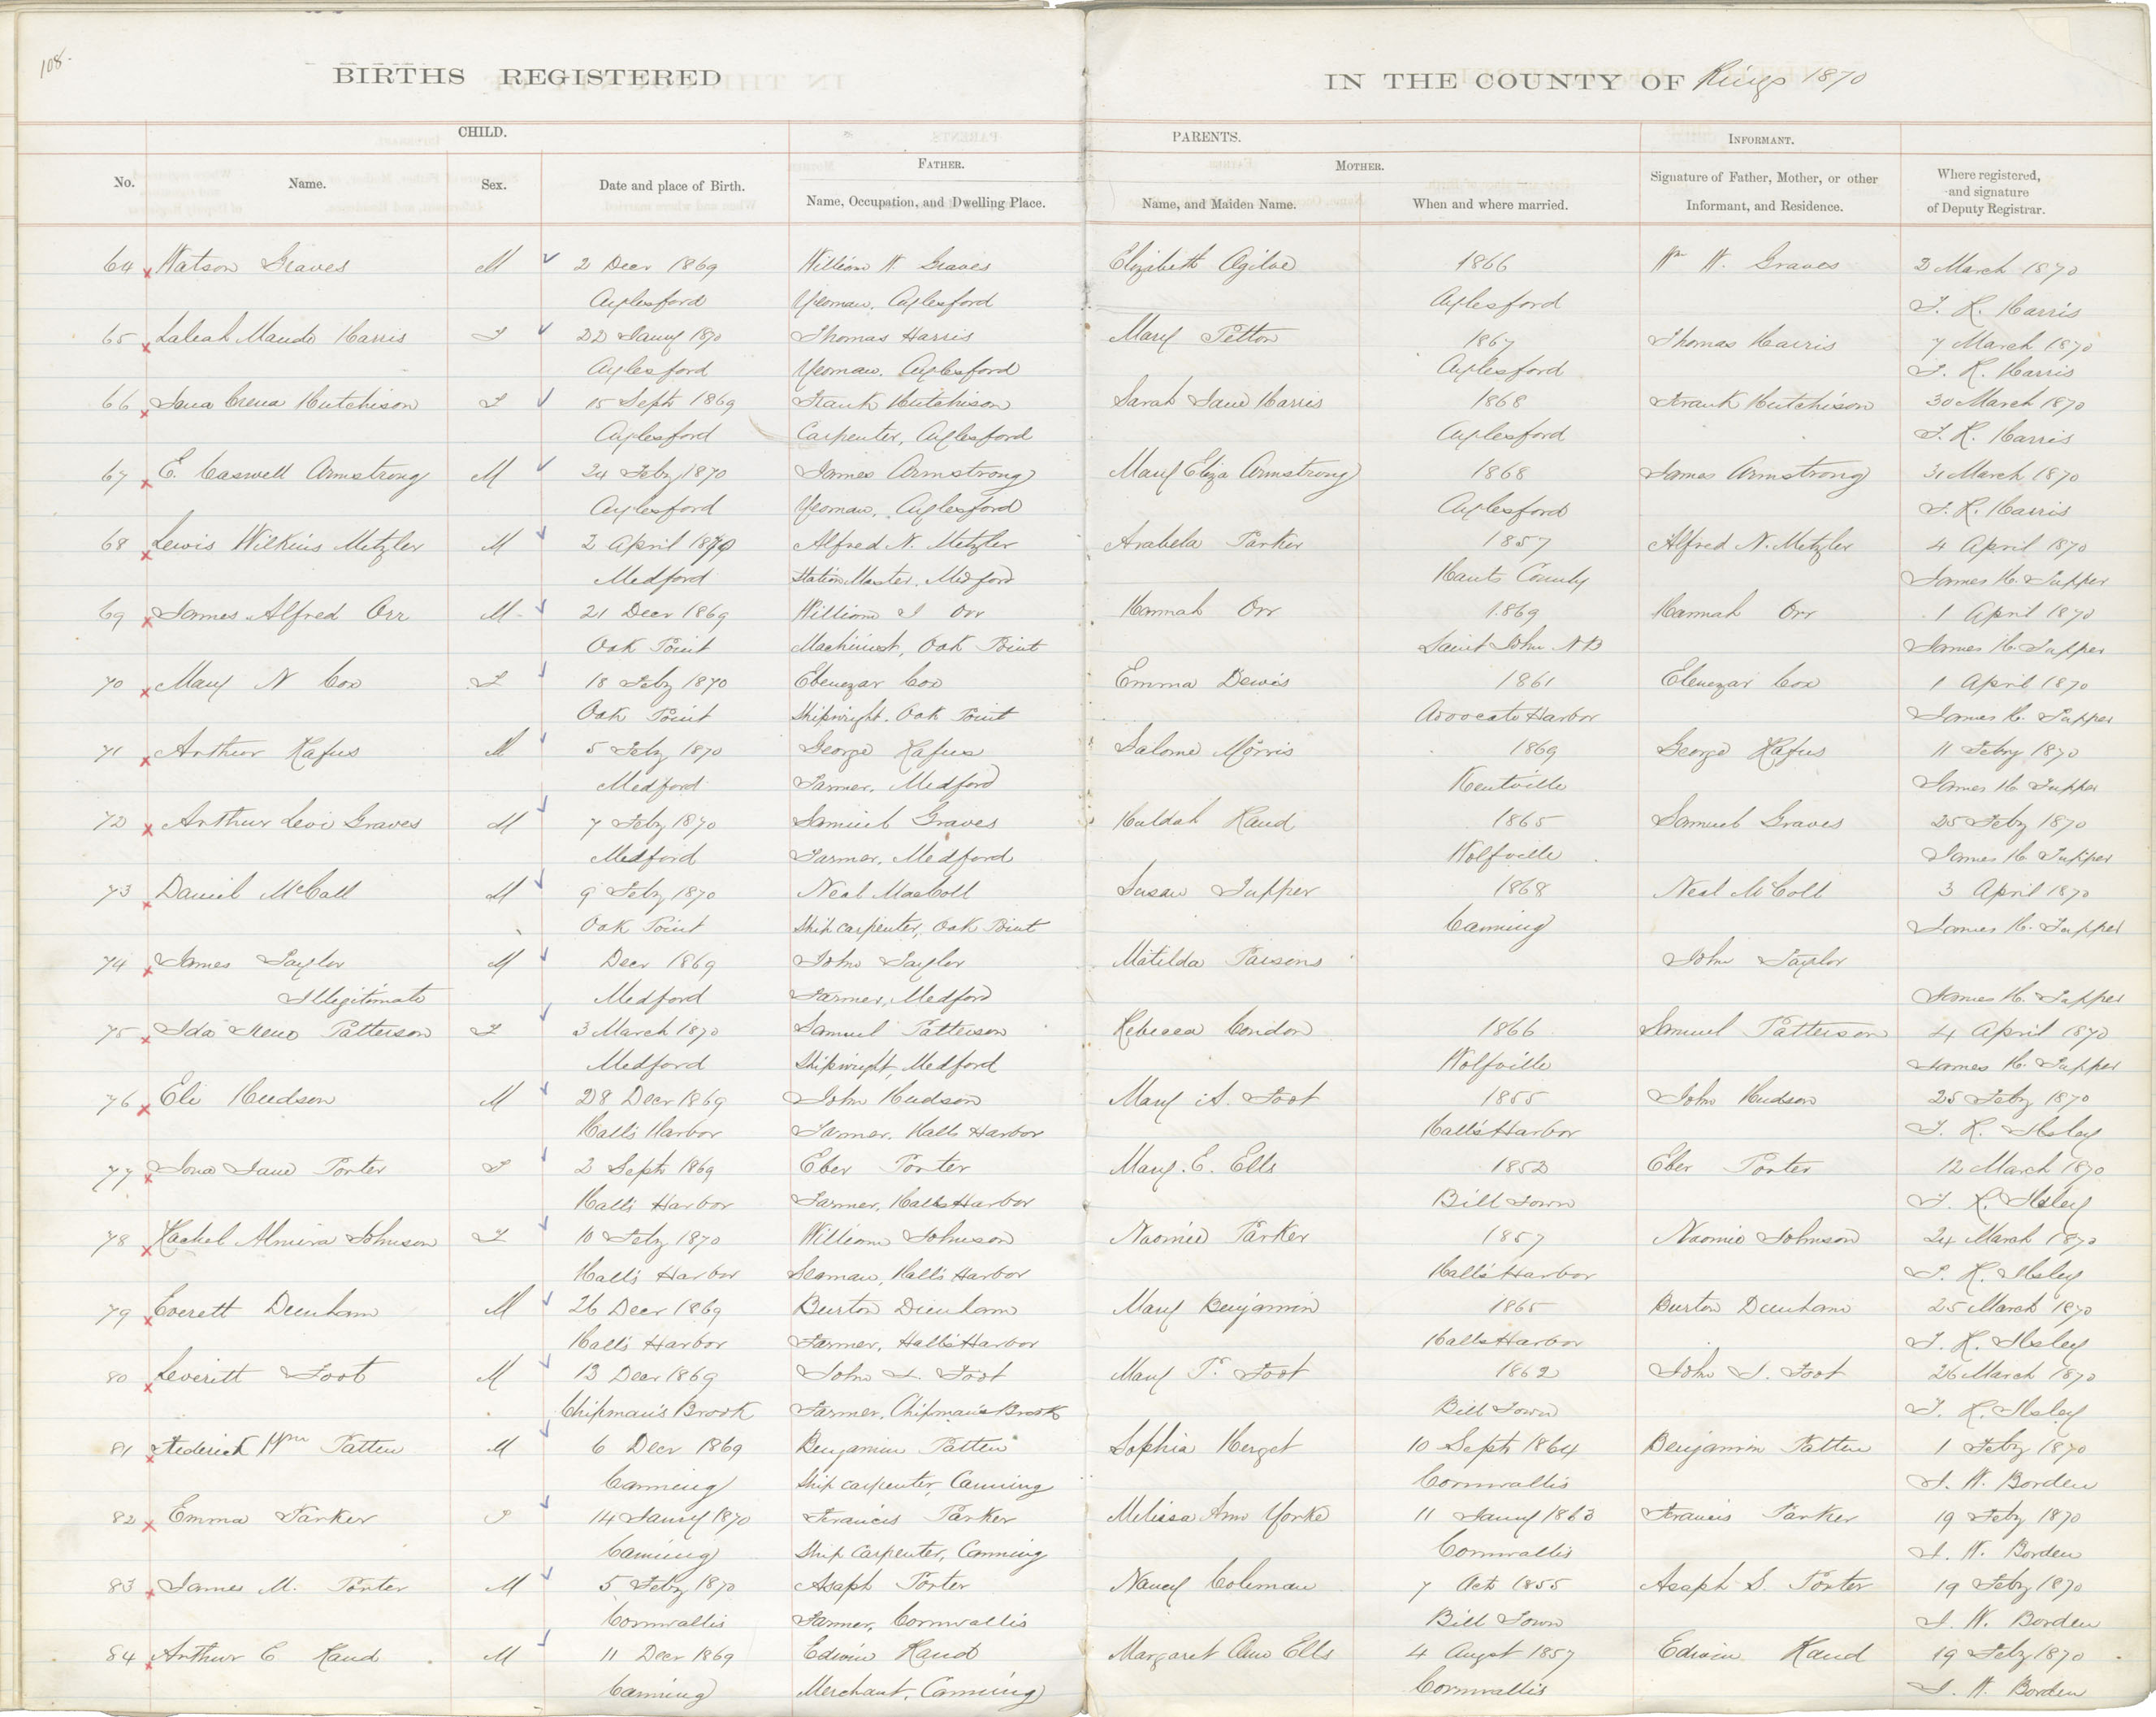 108.
BIRTHS REGISTERED IN THE COUNTY OF Kings 1870
CHILD. PARENTS. INFORMANT.
FATHER. MOTHER.
No. Name. Sex. Date and place of Birth. Name, Occupation, and Dwelling Place. Name, and Maiden Name. When and where married. Signature of Father, Mother, or other Informant, and Residence. Where registered, and signature of Deputy Registrar.
64 Watson Graves M 2 Decr 1869 William W. Graves Elizabeth Ogilve 1866 Wm W. Graves 2 March 1870
Aylesford Yeoman, Aylesford Aylesford T. R. Harris
65 Laleah Maude Harris F 22 Jany 1870 Thomas Harris Mary Petton 1867 Thomas Harris 7 March 1870
Aylesford Yeoman, Aylesford Aylesford T. R. Harris
66 Hutchison F 15 Sept 1869 Frank Hutchison Sarah Jane Harris 1868 Frank Hutchison 30 March 1870
Aylesford Carpenter, Aylesford Aylesford T. R. Harris
67 E. Caswell Armstrong M 24 Feby 1870 James Armstrong Mary Eliza Armstrong 1868 James Armstrong 31 March 1870
Aylesford Yeoman, Aylesford Aylesford T. R. Harris
68 Lewis Wilkins Metzler M 2 April 1870 Alfred N. Metzler Arabela Parker 1857 Alfred N. Metzler 4 April 1870
Medford Station Master, Medford Hants County James H. Tupper
69 James Alfred Orr M 21 Decr 1869 William J Orr Hannah Orr 1869 Hannah Orr 1 April 1870
Oak Point Machinist, Oak Point Saint John NB James H. Tupper
70 Mary N Cox F 18 Feby 1870 Ebenezar Cox Emma Dewis 1861 Ebenezar Cox 1 April 1870
Oak Point Shipwright. Oak Point Advocate Harbor James H. Tupper
71 Arthur Rafus M 5 Feby 1870 George Rafus Salome Morris 1869 George Rafus 11 Feby 1870
Medford Farmer, Medford Kentville James H Tupper
72 Arthur Levi Graves M 7 Feby 1870 Samuel Graves Huldah Rand 1865 Samuel Graves 25 Feby 1870
Medford Farmer, Medford Wolfville James H Tupper
73 Daniel McCall M 9 Feby 1870 Neal MacColl Susan Tupper 1868 Neal McColl 3 April 1870
Oak Point Ship carpenter, Oak Point Canning James H. Tupper
74 James Taylor M Decr 1869 John Taylor Matilda Parsons John Taylor
Illegitimate Medford Farmer, Medford James H. Tupper
75 Ida Irene Patterson F 3 March 1870 Samuel Patterson Rebecca Condon 1866 Samuel Patterson 4 April 1870
Medford Shipwright, Medford Wolfville James H. Tupper
76 Eli Hudson M 28 Decr 1869 John Hudson Mary A. Foot 1855 John Hudson 25 Feby 1870
Halls Harbor Farmer, Halls Harbor Hall's Harbor T. R. Ilsley
77 Iona Jane Porter F 2 Sept 1869 Eber Porter Mary E. Ells 1852 Eber Porter 12 March 1870
Halls Harbor Farmer, Halls Harbor Bill Town T. R. Ilsley
78 Rachel Almira Johnson F 10 Feby 1870 William Johnson Naomie Parker 1857 Naomie Johnson 24 March 1870
Hall's Harbor Seaman, Hall's Harbor Hall's Harbor T. R. Ilsley
79 Everett Denham M 26 Decr 1869 Burton Dienham Mary Benjamin 1865 Burton Denham 25 March 1870
Hall's Harbor Farmer, Hall's Harbor Halls Harbor T. R. Ilsley
80 Leveritt Foot M 13 Decr 1869 John I. Foot Mary P. Foot 1862 John I. Foot 26 March 1870
Chipman's Brook Farmer, Chipman's Brook Bill Town T. R. Ilsley
81 Frederick Wm Patten M 6 Decr 1869 Benjamin Patten Sophia Herget 10 Sept 1864 Benjamin Patten 1 Feby 1870
Canning Ship carpenter, Canning Cornwallis J. W. Borden
82 Emma Parker F 14 Jany 1870 Francis Parker Melissa Ann Yorke 11 Jany 1863 Francis Parker 19 Feby 1870
Canning Ship Carpenter, Canning Cornwallis J. W. Borden
83 James M. Porter M 5 Feby 1870 Asaph Porter Nancy Coleman 7 Oct 1855 Asaph S. Porter 19 Feby 1870
Cornwallis Farmer, Cornwallis Bill Town J. W. Borden
84 Arthur C Rand M 11 Decr 1869 Edwin Rand Margaret Ann Ells 4 Augst 1857 Edwin Rand 19 Feby 1870
Canning Merchant, Canning Cornwallis J. W. Borden